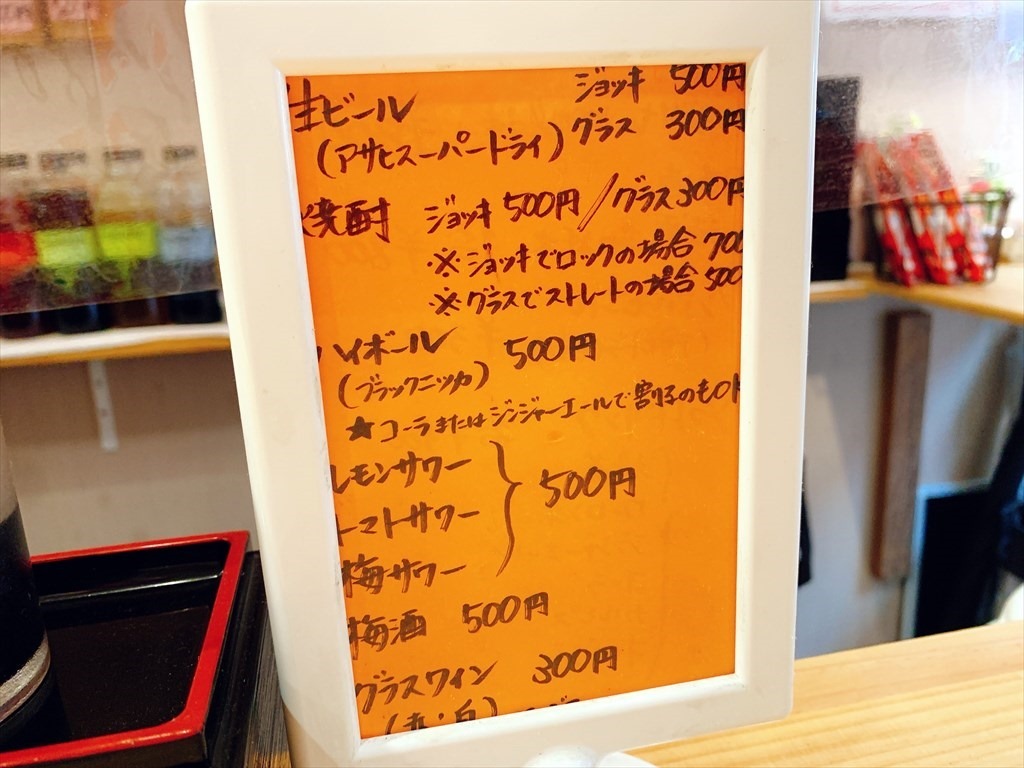 生ビール ジョッキ 500円
(アサヒスーパードライ) グラス 300円
焼酎 ジョッキ 500円/グラス 300円
※ジョッキでロックの場合 700
※グラスでストレートの場合 500
ハイボール 500円
(ブラックニッカ)
★コーラまたはジンジャーエールで割るのもOK
レモンサワー
トマトサワー 500円
梅サワー
梅酒 500円
グラスワイン 300円
(赤・白)